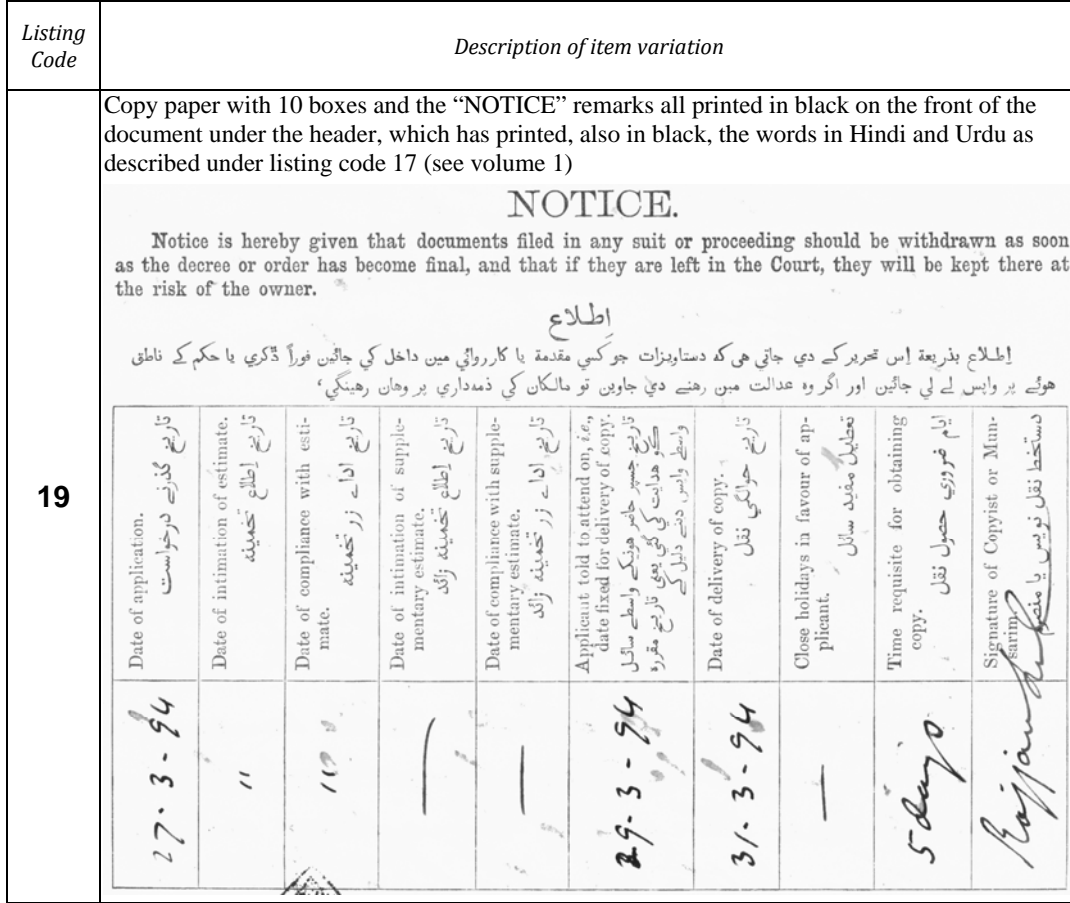 Listing
Code
Description of item variation
Copy paper with 10 boxes and the “NOTICE” remarks all printed in black on the front of the
document under the header, which has printed, also in black, the words in Hindi and Urdu as
described under listing code 17 (see volume 1)
19
NOTICE.
Notice is hereby given that documents filed in any suit or proceeding should be withdrawn as soon
as the decree or order has become final, and that if they are left in the Court, they will be kept there at
the risk of the owner.
اِطلاع
اِطلاع بذریعة اِس تحریر کے دي جاتي هی که دستاویزات جو کسي مقدمة یا کارروائي مین داخل کي جائین فوراً ڈکري یا حکم کے ناطق
هوئے پر واپس لے لي جائین اور اگر وه عدالت مین رهنے دي جاوین تو مالکان کي ذمهداري پر وهان رهینگي،
Date of application.
تاریخ گذرنے درخواست
27. 3 - 94
Date of intimation of estimate.
تاریخ اِطلاع تخمینه
"
Date of compliance with esti-
mate.
تاریخ اداے زر تخمینه
"
Date of intimation of supple-
mentary estimate.
تاریخ اِطلاع تخمینه زائد
—
Date of compliance with supple-
mentary estimate.
تاریخ اداے زر تخمینه زائد
—
Applicant told to attend on, i.e.,
date fixed for delivery of copy.
تاریخ جسپر حاضر هونیکے واسطے سائل
کو هدایت کي گئي یعني تاریخ مقرره
واسطے واپس دینے دلیل کے
29. 3 - 94
Date of delivery of copy.
تاریخ حوالگي نقل
31. 3 - 94
Close holidays in favour of ap-
plicant.
تعطیل مفید سائل
—
Time requisite for obtaining
copy.
ایام ضروري حصول نقل
5 days
Signature of Copyist or Mun-
sarim.
دستخط نقل نویس یا منصرم